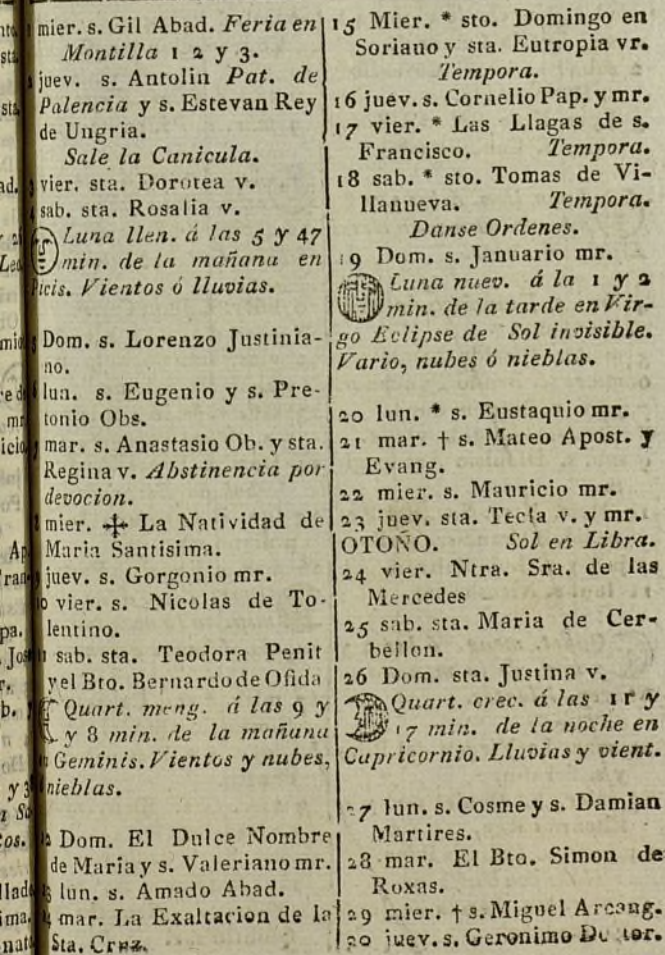 mier. s. Gil Abad. Feria en
Montilla 1 2 y 3.
juev. s. Antolin Pat. de
Palencia y s. Estevan Rey
de Ungria.
Sale la Canicula.
vier. sta. Dorotea v.
sab. sta. Rosalia v.
Luna llen. á las 5 y 47
min. de la mañana en
Picis. Vientos ó lluvias.
Dom. s. Lorenzo Justinia-
no.
lun. s. Eugenio y s. Pre-
tonio Obs.
mar. s. Anastasio Ob. y sta.
Regina v. Abstinencia por
devocion.
mier. ✠ La Natividad de
Maria Santisima.
juev. s. Gorgonio mr.
vier. s. Nicolas de To-
lentino.
sab. sta. Teodora Penit
y el Bto. Bernardo de Ofida
Quart. meng. á las 9 y
y 8 min. de la mañana
Geminis. Vientos y nubes,
nieblas.
Dom. El Dulce Nombre
de Maria y s. Valeriano mr.
lun. s. Amado Abad.
mar. La Exaltacion de la
Sta. Cruz.
15 Mier. * sto. Domingo en
Soriano y sta. Eutropia vr.
Tempora.
16 juev. s. Cornelio Pap. y mr.
17 vier. * Las Llagas de s.
Francisco. Tempora.
18 sab. * sto. Tomas de Vi-
llanueva. Tempora.
Danse Ordenes.
19 Dom. s. Januario mr.
Luna nuev. á la 1 y 2
min. de la tarde en Vir-
go Eclipse de Sol invisible.
Vario, nubes ó nieblas.
20 lun. * s. Eustaquio mr.
21 mar. † s. Mateo Apost. y
Evang.
22 mier. s. Mauricio mr.
23 juev. sta. Tecla v. y mr.
OTOÑO. Sol en Libra.
24 vier. Ntra. Sra. de las
Mercedes
25 sab. sta. Maria de Cer-
bellon.
26 Dom. sta. Justina v.
Quart. crec. á las 11 y
17 min. de la noche en
Capricornio. Lluvias y vient.
27 lun. s. Cosme y s. Damian
Martires.
28 mar. El Bto. Simon de
Roxas.
29 mier. † s. Miguel Arcang.
30 juev. s. Geronimo Doctor.